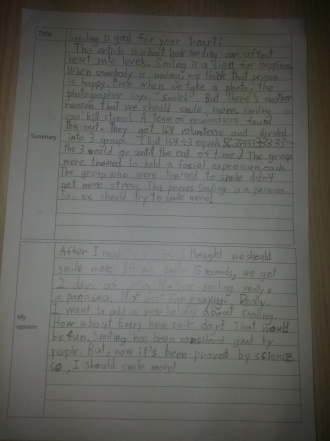 Title
Smiling is good for your heart!
This article is about how smiling can affect
heart rate levels. Smiling is a sign for happiness.
When somebody is smiling, we think that person
is happy. Even when we take a photo, the
photographer says "smile". But there's another
reason that we should smile more. Smiling
can kill stress. A team of researchers found
this out. They get 169 volunteers and divided
into 3 groups.
the 3 would go until the end of time) The groups
were trained to hold a facial expression each.
The group who were trained to smile didn't
get more stress. This proves smiling is a panacea.
So, we should try to smile more!
Summary
After I read I thought we should
smile more. If we smile 15 seconds, we get
2 days of
a panacea. Really.
I want to add a new holiday about smiling.
How about Every hour smile day? That would
be fun. Smiling has been considered good by
people. But, now it's been proved by science
so, I should smile more!
My
opinion